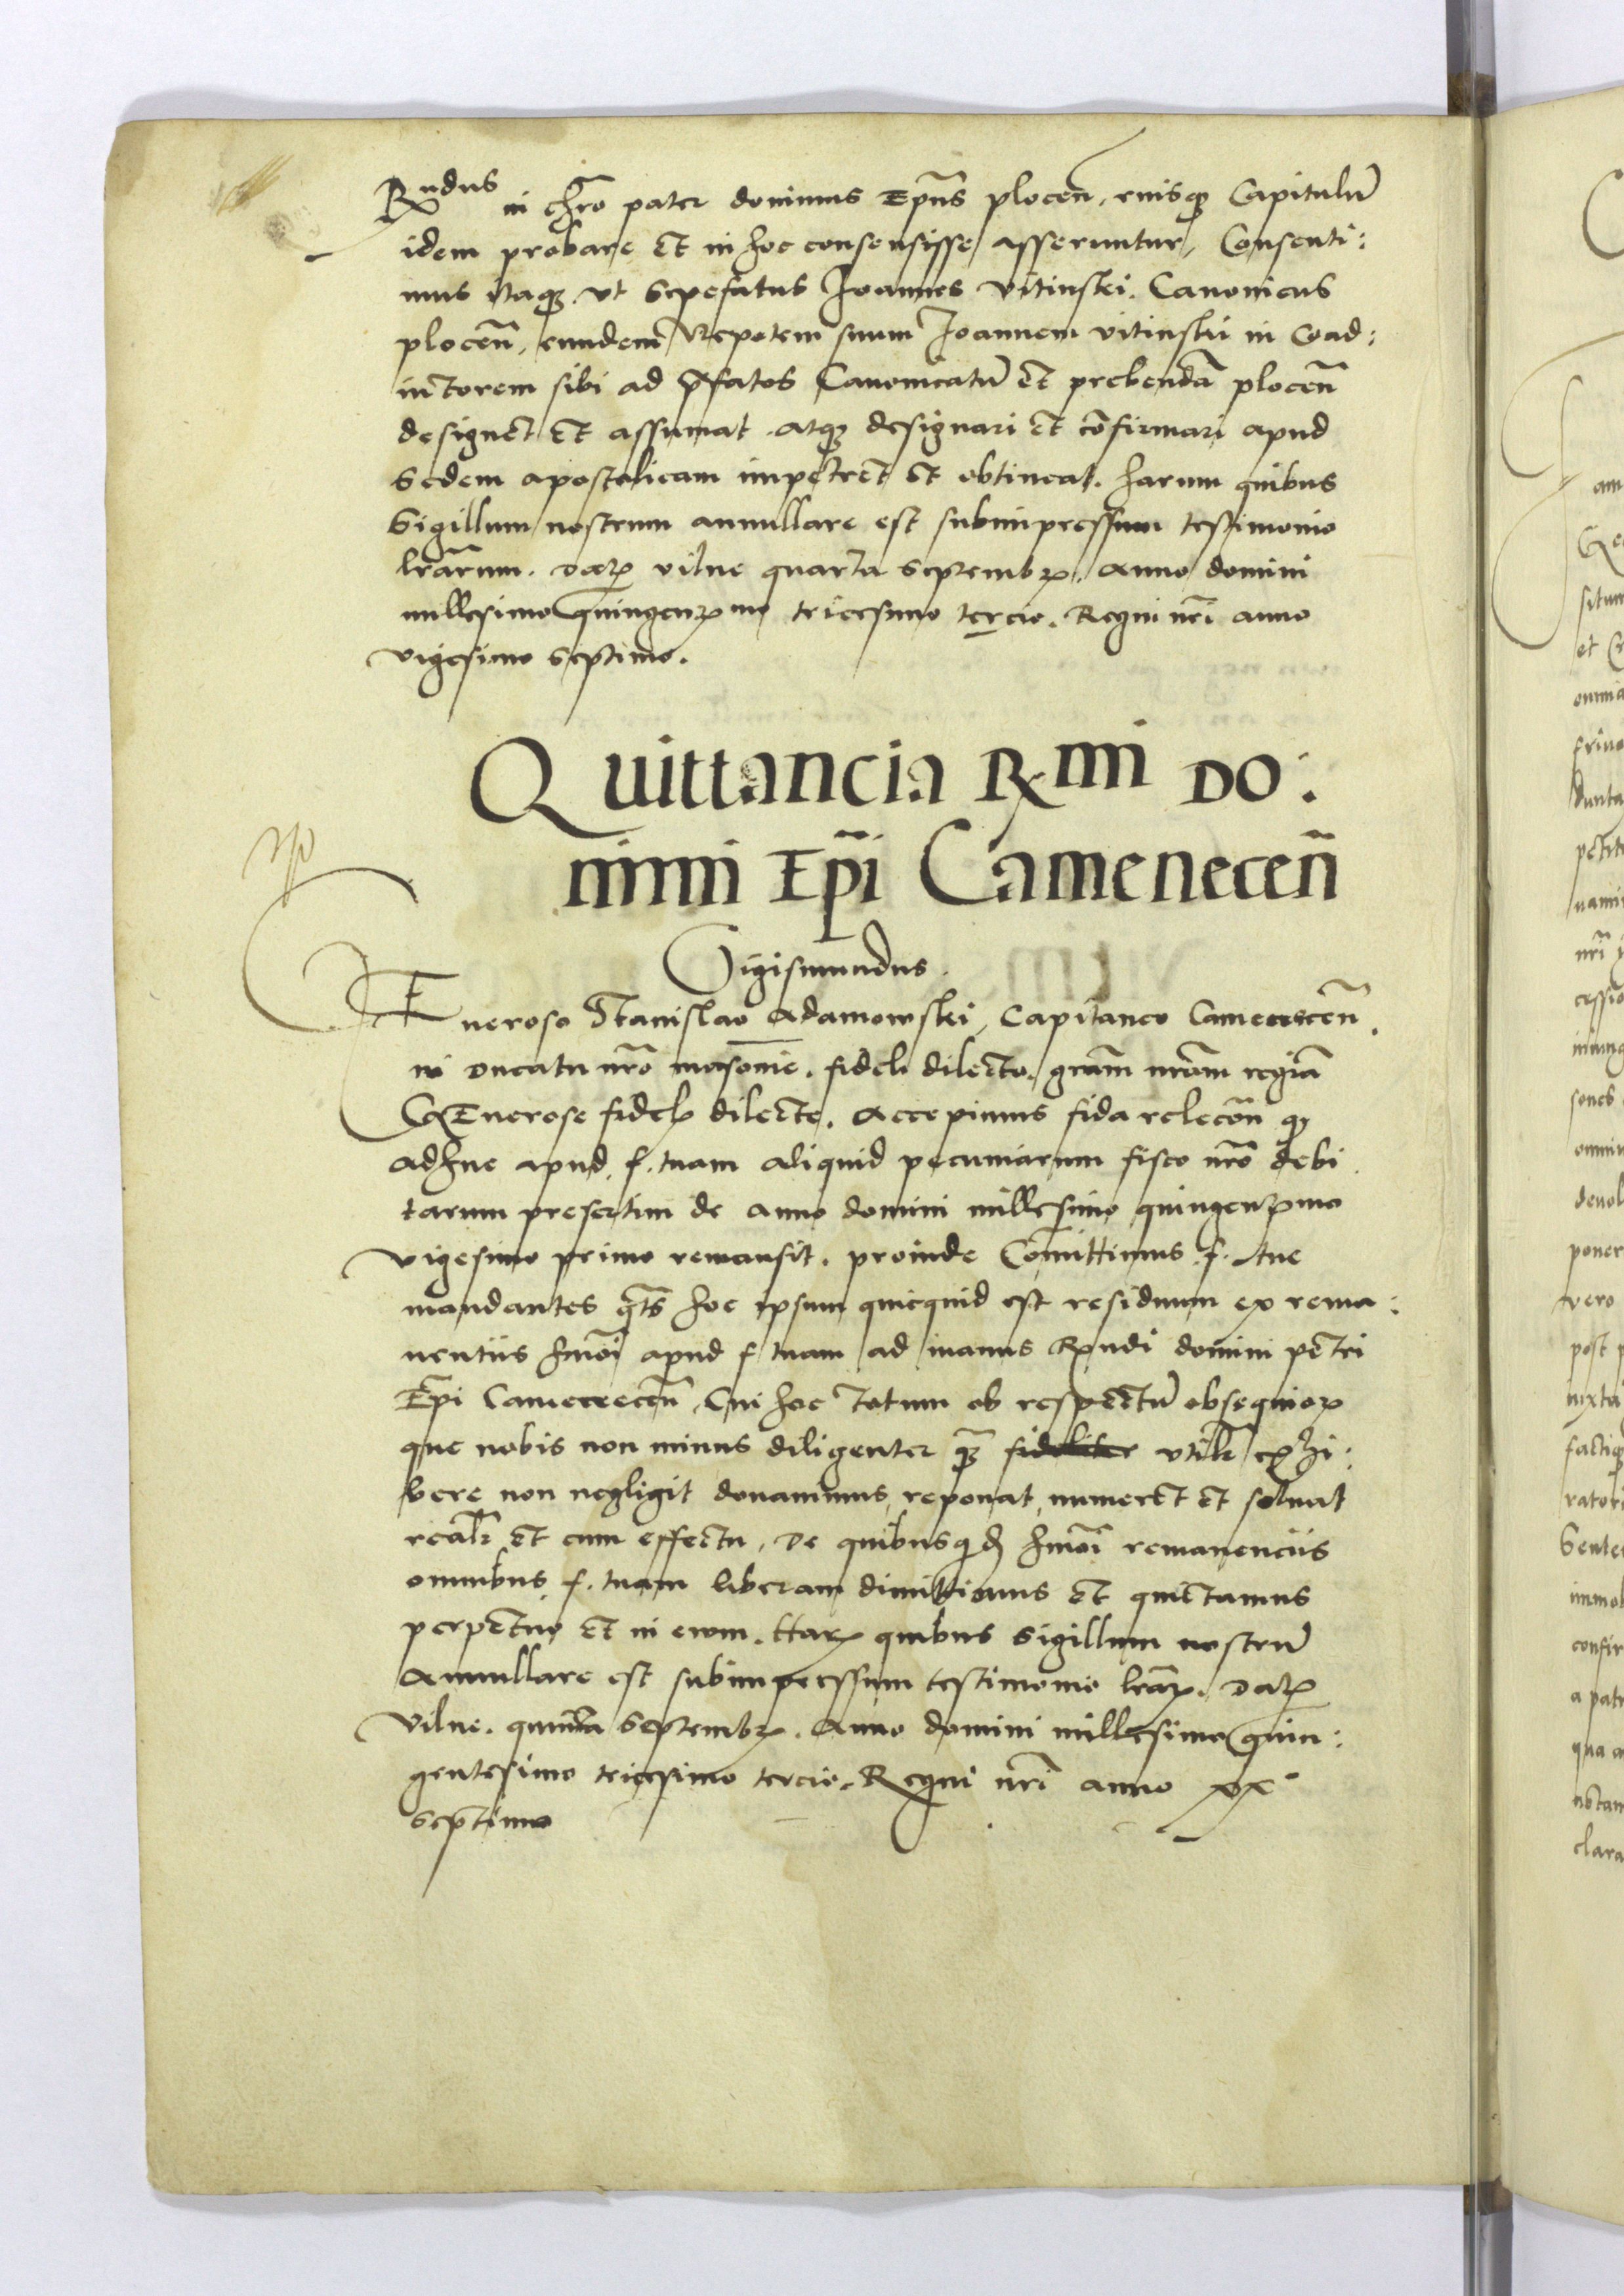 Rndus in chro pater dominus Epūs plocen̄, eiusq3 Capitulū
idem probare et in hoc consensisse asseruntur, Consenti:
mus itaq3 vt sepefatus Joannes vitinski Canonicus
plocen̄, eundem Nepotem suum Joannem vitinski in Coad:
iutorem sibi ad p̄fatos Canonicatū et prebendā plocen̄
designet et assumat, atq3 designari et cōfirmari apud
Sedem apostolicam impetret et obtineat. harum quibus
Sigillum nostrum annullare est subimpressum testimonio
lrārum. Datꝝ vilne quarta septembꝝ. Anno domini
millesimo quingenꝝmo tricesimo tercio. Regni nrī anno
vigesimo septimo.
Quittancia Rmi Do:
mini Ep̄i Camenecen̄
Sigismundus.
Eneroso Stanislao Adamowski, Capitaneo Camenecen̄
in Ducatu nrō masouie, fideli dilecto, grām nrām regiā
GEnerose fidelꝭ dilecte. Accepimus fida relecōn q3
adhuc apud f. tuam aliquid pecuniarum fisco nrō debi
tarum presertim de anno domini millesimo quingenꝝmo
vigesimo primo remansit. proinde Comittimus f. tue
mandantes q̄ts hoc ipsum quicquid est residuum ex rema:
nentiis hmōi apud f tuam ad manus Rndi domini petri
Ep̄i Camenecen̄ Cui hoc totum ob respectū obsequioꝝ
que nobis non minus diligenter q̄3 fideliter vtilr exhi:
bere non negligit donauimus, reponat numeret et soluat
realr et cum effectu, De quibusquid hmōi remanenciis
omnibus f. tuam liberam dimittimus et quictamus
perpetuo et in ewm. Harꝝ quibus Sigillum nostrū
Annullare est subimpressum testimonio lrāꝝ. Datꝝ
Vilne. quinta Septembꝝ. Anno domini millesimo quin:
gentesimo tricesimo tercio. Regni nrī anno xx
septimo